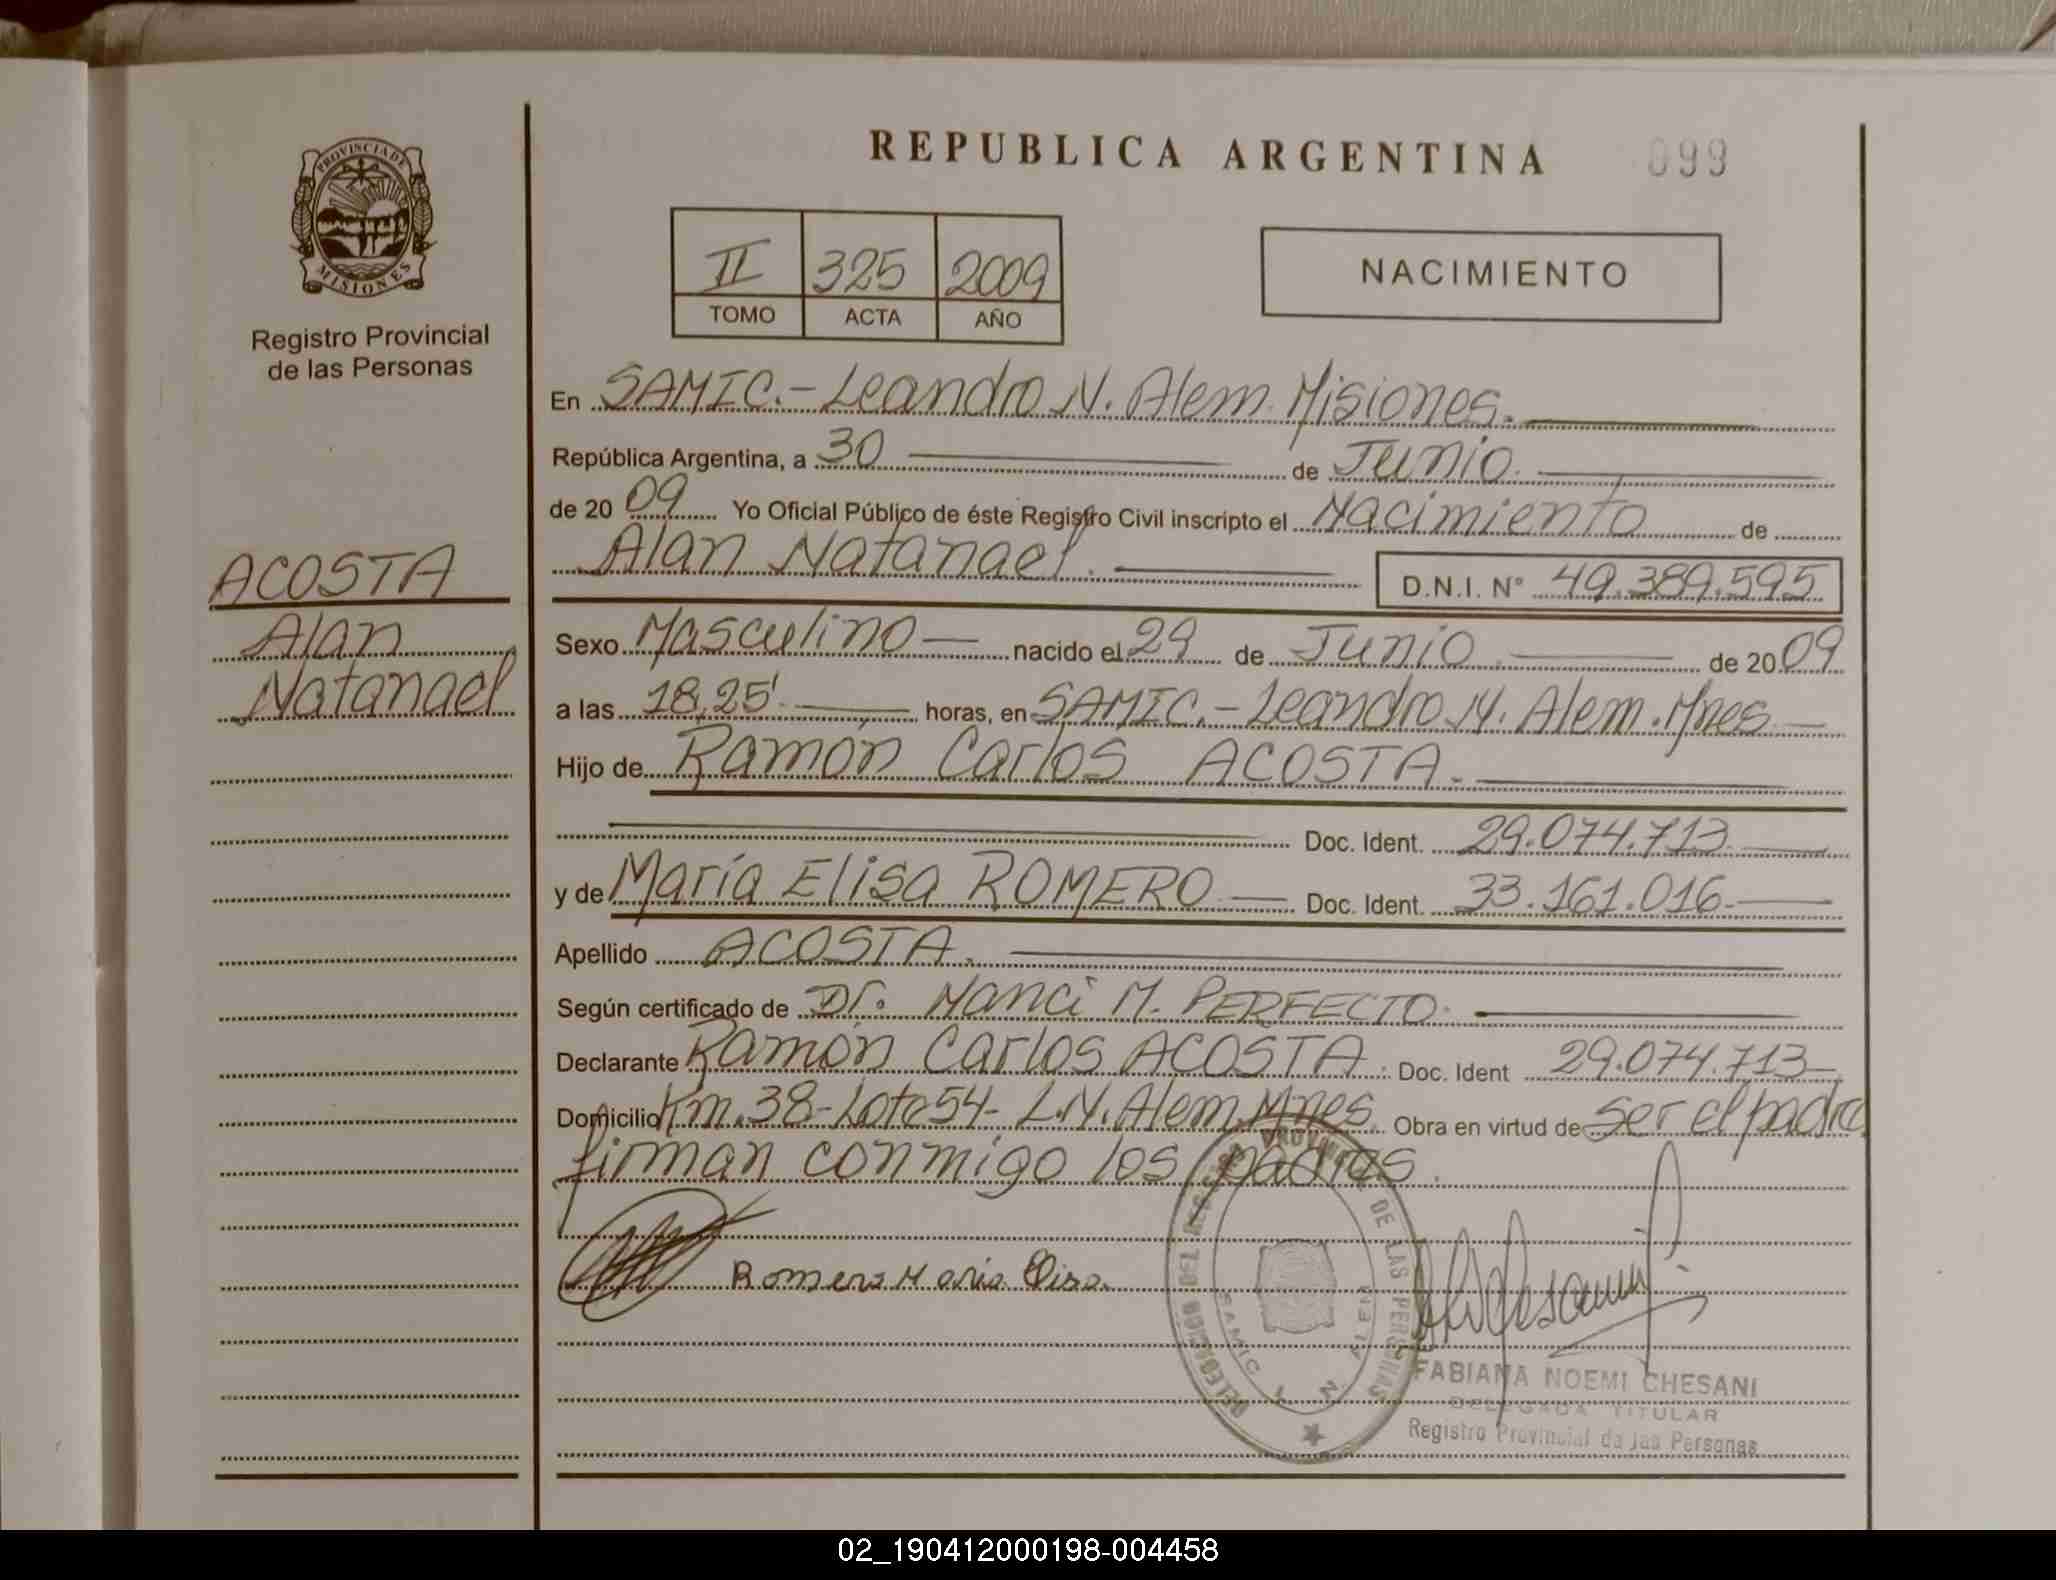 REPUBLICA ARGENTINA 099
PROVINCIA DE
MISIONES
Registro Provincial
de las Personas
II 325 2009
TOMO ACTA AÑO
NACIMIENTO
En SAMIC.- Leandro N. Alem Misiones.
República Argentina, a 30 de Junio.
de 2009 Yo Oficial Público de éste Registro Civil inscripto el Nacimiento de
Alan Natanael. D.N.I. N° 49.389.595
ACOSTA
Alan
Natanael
Sexo Masculino nacido el 29 de Junio. de 2009
a las 18,25' horas, en SAMIC.- Leandro N. Alem. Mnes
Hijo de Ramón Carlos ACOSTA.
Doc. Ident. 29.074.713
y de María Elisa ROMERO Doc. Ident. 33.161.016
Apellido ACOSTA.
Según certificado de Dr. Nanci M. PERFECTO.
Declarante Ramón Carlos ACOSTA. Doc. Ident 29.074.713
Domicilio Km.38-Lote 54- L.N. Alem. Mnes. Obra en virtud de ser el padre
firman conmigo los padres.
Romero Maria Elisa.
PROVINCIAL DE LAS PERSONAS
SAMIC L N ALEM
FABIANA NOEMI CHESANI
DELEGADA TITULAR
Registro Provincial de las Personas
02_190412000198-004458